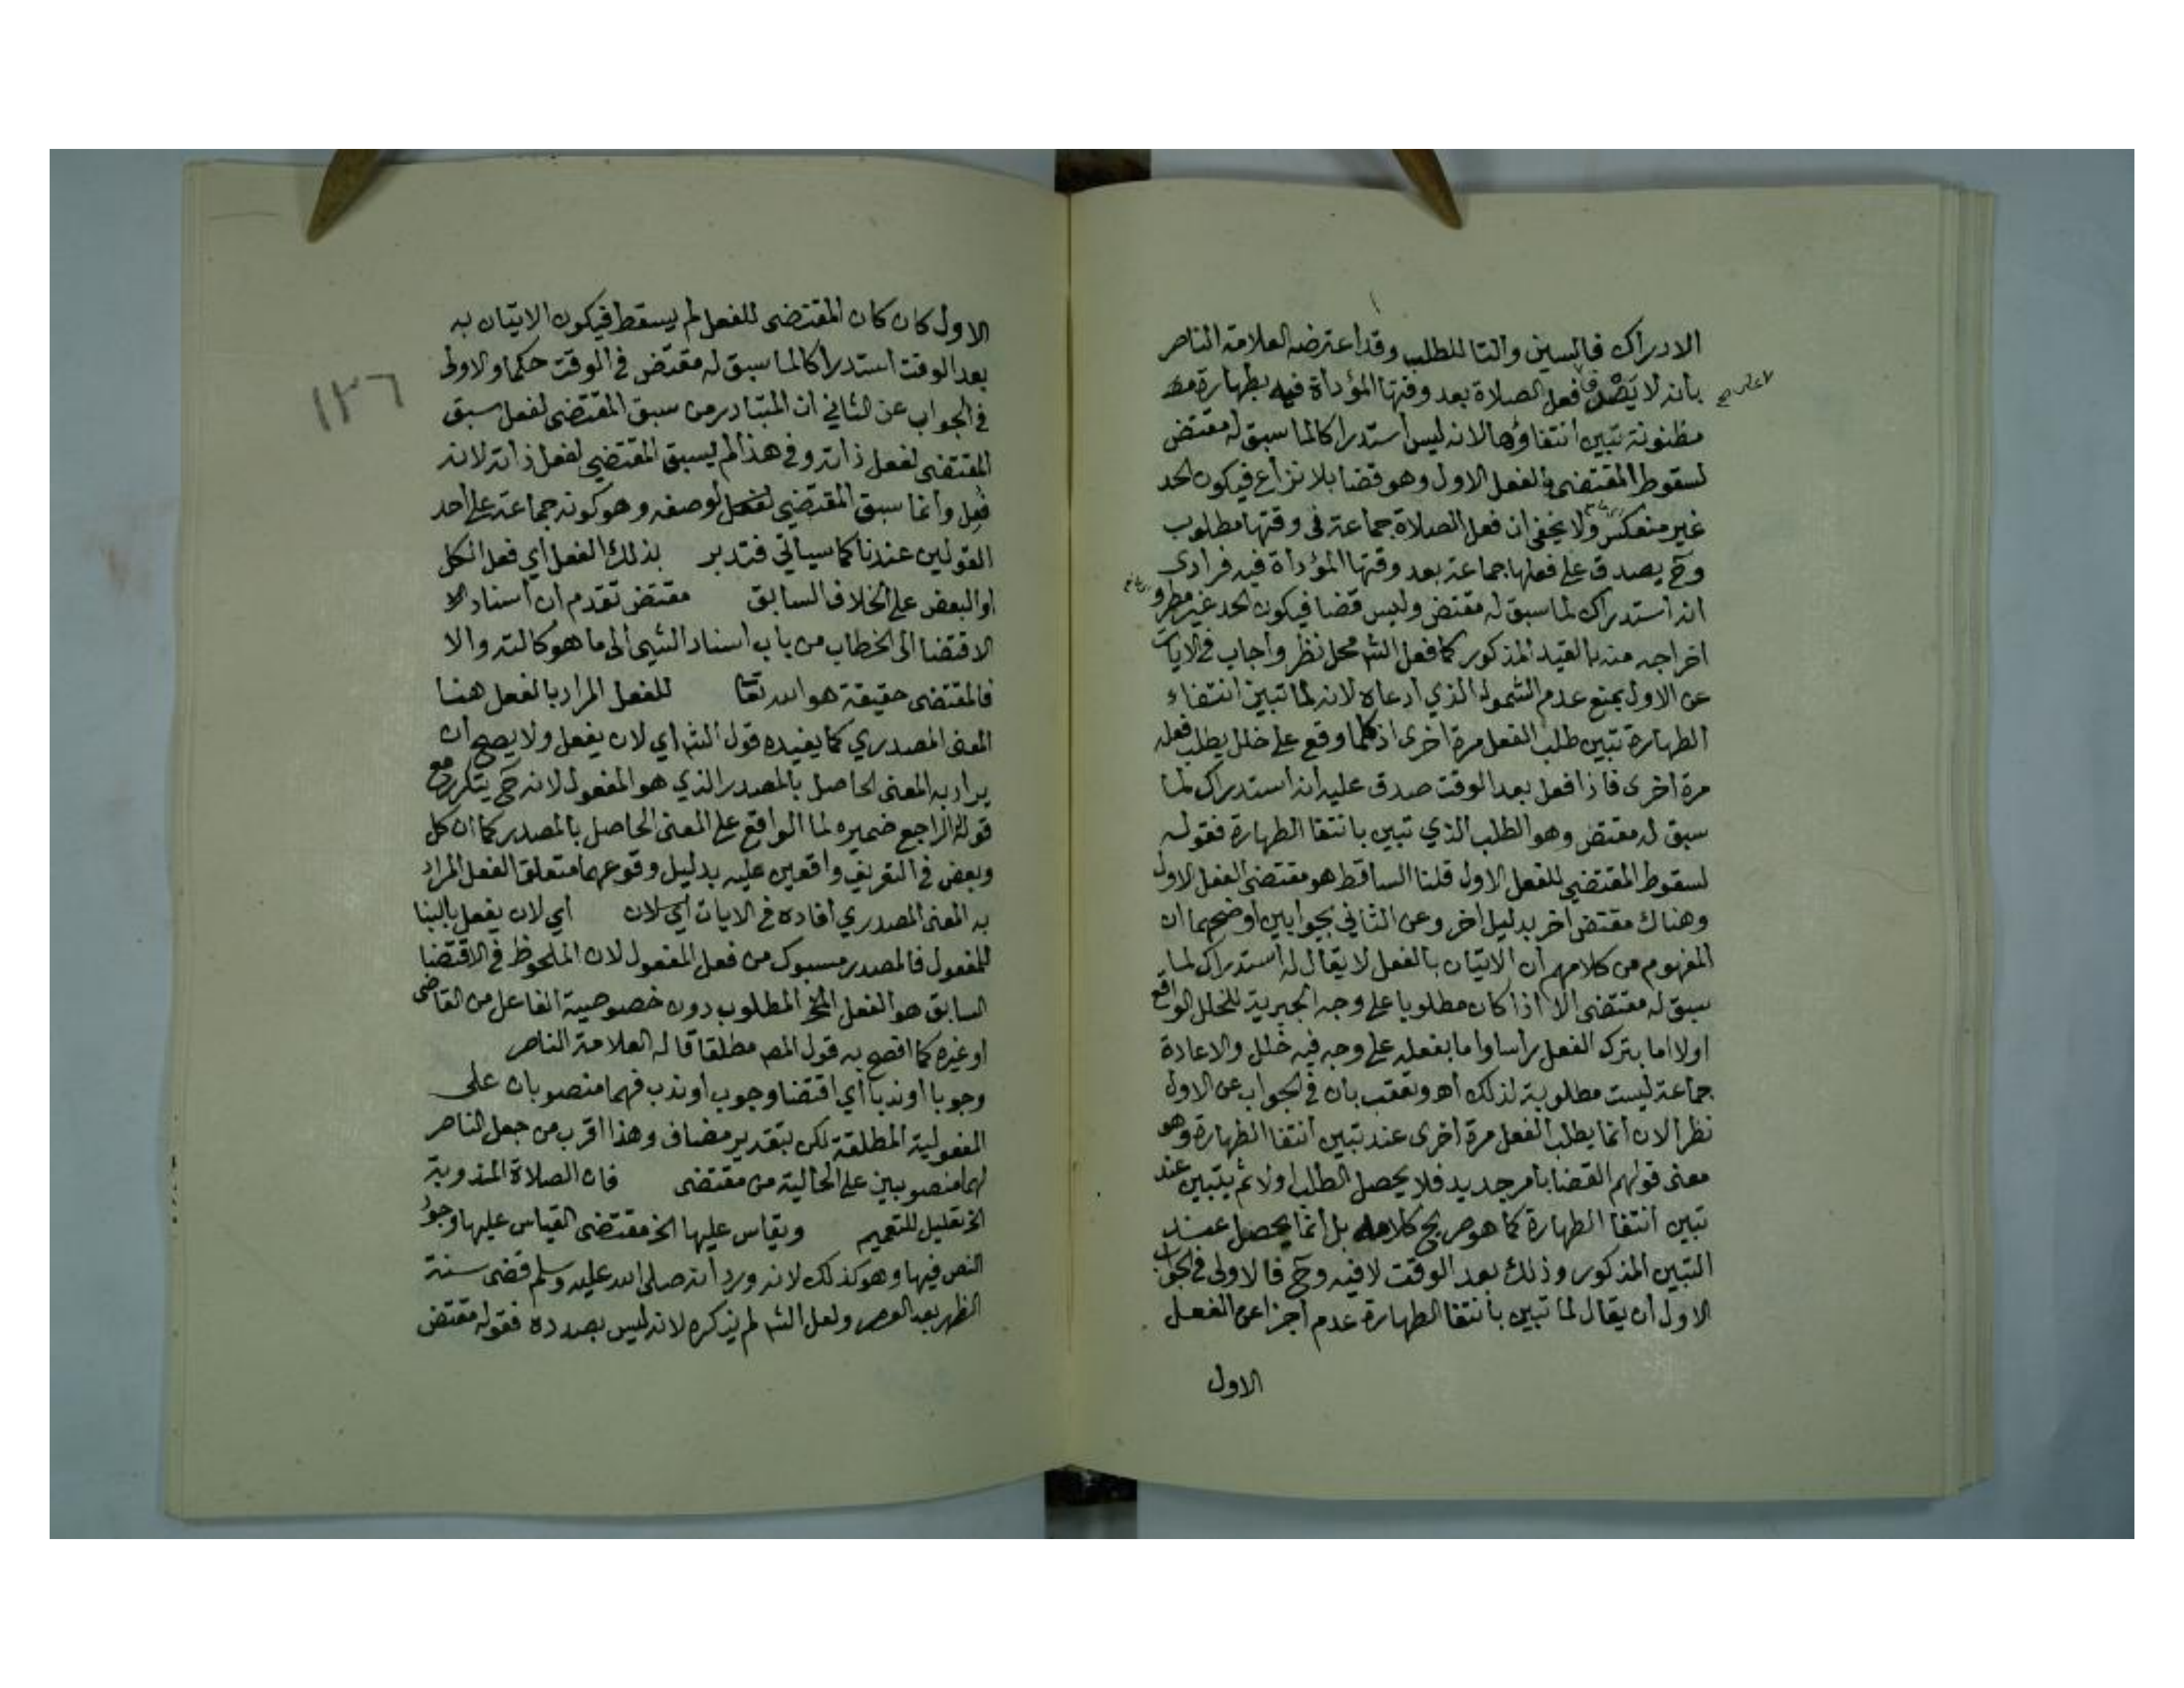 الادراك فالسين والتا للطلب وقد اعترضه العلامة الناصر
بانه لا يصدق فعل الصلاة بعد وقتها المؤداة فيه بطهارة
مظنونة تبين انتفاؤها لانه ليس استدراكا لما سبق له مقتض
لسقوط المقتضى بالفعل الاول وهو قضا بلا نزاع فيكون الحد
غير منعكس ولا يخفى ان فعل الصلاة جماعة فى وقتها مطلوب
وح يصدق على فعلها جماعة بعد وقتها المؤداة فيه فرادى
انه استدراك لما سبق له مقتض وليس قضا فيكون الحد غير مطرد
اخراجه منه بالقيد المذكور كما فعل الشم محل نظر واجاب فى الايات
عن الاول بمنع عدم الشمول الذي ادعاه لانه لما تبين انتفاء
الطهارة تبين طلب الفعل مرة اخرى اذ كلما وقع على خلل يطلب فعله
مرة اخرى فاذا فعل بعد الوقت صدق عليه انه استدراك لما
سبق له مقتض وهو الطلب الذي تبين بانتفا الطهارة فقوله
لسقوط المقتضي للفعل الاول قلنا الساقط هو مقتضى الفعل الاول
وهناك مقتض اخر بدليل اخر وعن الثاني بجوابين اوضحهما ان
المفهوم من كلامهم ان الاتيان بالفعل لا يقال له استدراك لما
سبق له مقتضى الا اذا كان مطلوبا على وجه الجبرية للخلل الواقع
اولا اما بترك الفعل راسا واما بفعله على وجه فيه خلل والاعادة
جماعة ليست مطلوبة لذلك اهـ وتعقب بان فى الجواب عن الاول
نظرا لان انما يطلب الفعل مرة اخرى عند تبين انتفا الطهارة وهو
معنى قولهم القضا بامر جديد فلا يحصل الطلب اولا ثم يتبين عند
تبين انتفا الطهارة كما هو صريح كلامه بل انما يحصل عند
التبين المذكور وذلك بعد الوقت لا فيه وح فالاولى فى الجواب
الاول ان يقال لما تبين بانتفا الطهارة عدم اجزا عن الفعل
الاول
١٣٦
الاول كان كان المقتضى للفعل لم يسقط فيكون الاتيان به
بعد الوقت استدراكا لما سبق له مقتض فى الوقت حكما والاولى
فى الجواب عن الثاني ان المتبادر من سبق المقتضى لفعل سبق
المقتضى لفعل ذاته وفى هذا لم يسبق المقتضي لفعل ذاته لانه
فعل وانما سبق المقتضي لوصفه وهو كونه جماعة على احد
القولين عندنا كما سياتي فتدبر بذلك الفعل اي فعل الكل
او البعض على الخلاف السابق مقتض تقدم ان اسناد
الاقتضا الى الخطاب من باب اسناد الشيى الى ما هو كالته والا
فالمقتضى حقيقة هو الله تعا للفعل المراد بالفعل هنا
المعنى المصدري كما يفيده قول الشم اي لان يفعل ولا يصح ان
يراد به المعنى الحاصل بالمصدر الذي هو المفعول لانه ح يتكرر مع
قوله الراجع ضميره لما الواقع على المعنى الحاصل بالمصدر كما ان كل
وبعض فى التعريف واقعين عليه بدليل وقوعهما متعلق الفعل المراد
به المعنى المصدري افاده فى الايات اي لان يفعل بالبنا
للمفعول فالمصدر مسبوك من فعل المفعول لان الملحوظ فى الاقتضا
السابق هو الفعل المطلوب دون خصوصية الفاعل من القاضى
او غيره كما افصح به قول المصـ مطلقا قاله العلامة الناصر
وجوبا او ندبا اي اقتضا وجوب او ندب فهما منصوبان على
المفعولية المطلقة لكن بتقدير مضاف وهذا اقرب من جعل الناصر
لهما منصوبين على الحالية من مقتضى فان الصلاة المندوبة
الخ تعليل للتعميم ويقاس عليها الخ مقتضى القياس عليها وجود
النص فيها وهو كذلك لانه ورد انه صلى الله عليه وسلم قضى سنة
الظهر بعد العصر ولعل الشم لم يذكره لانه ليس بصدده فقوله مقتض